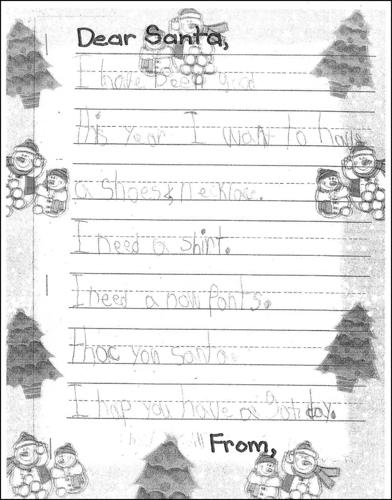 Dear Santa,
I have been good
this year I want to have
a Shoes & necklace.
I need a shirt.
I need a now pants.
thac you santa.
I hap you have a gat day.
From,